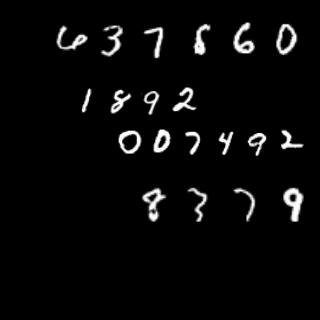 637860
1892
007492
8379